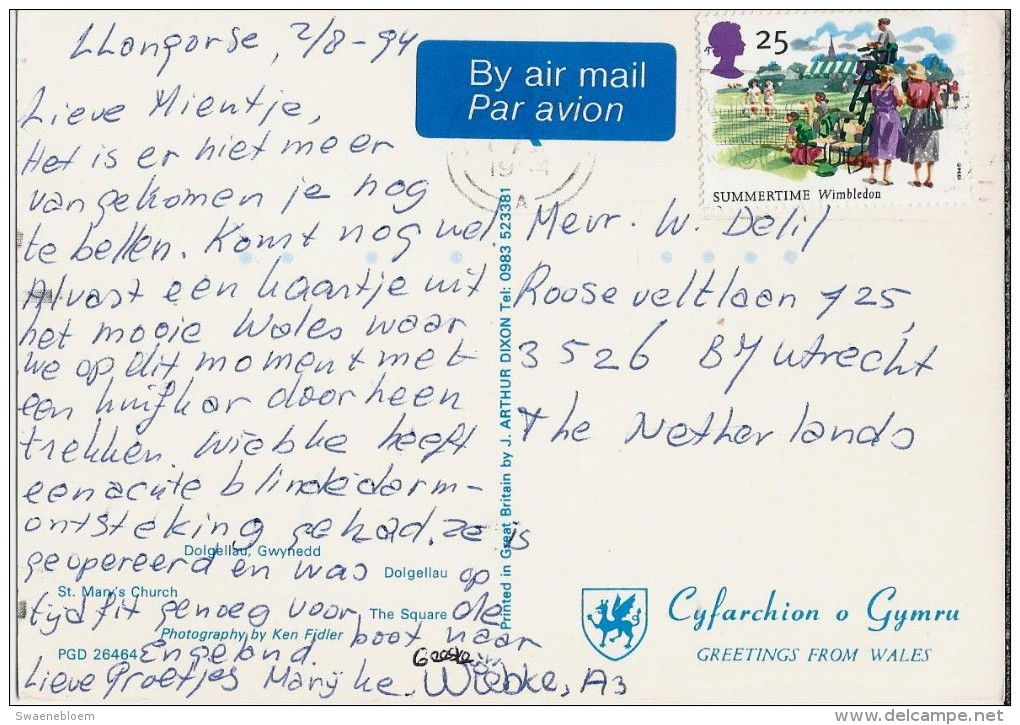 LLangorse, 2/8-94
Lieve Mientje,
Het is er niet meer
van gekomen je nog
te bellen. Komt nog wel.
Alvast een kaartje uit
het mooie Wales waar
we op dit moment met
een huifkar doorheen
trekken. Wiebke heeft
een acute blindedarm-
ontsteking gehad. Ze is
geopereerd en was op
tijd fit genoeg voor de
boot naar
Engeland.
Lieve Groetjes Marijke. Wiebke, A3
Geeske
Dolgellau, Gwynedd
Dolgellau
St. Mary's Church
The Square
Photography by Ken Fidler
PGD 26464
Printed in Great Britain by J. ARTHUR DIXON Tel: 0983 523381
By air mail
Par avion
19 4
A
25
SUMMERTIME Wimbledon
1994
Mevr. W. Delil
Rooseveltlaan 125,
3526 BJ Utrecht
The Netherlands
Cyfarchion o Gymru
GREETINGS FROM WALES
Swaenebloem
http://www.delcampe.net